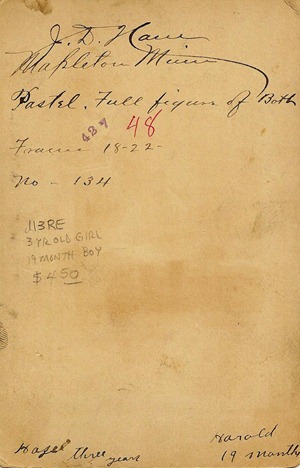 J. D. Hane
Mapleton Minn
Pastel. Full figure of Both
487 48
Frame 18-22-
No - 134
113RE
3 YR OLD GIRL
19 MONTH BOY
$4.50
Hazel three years
Harold
19 months